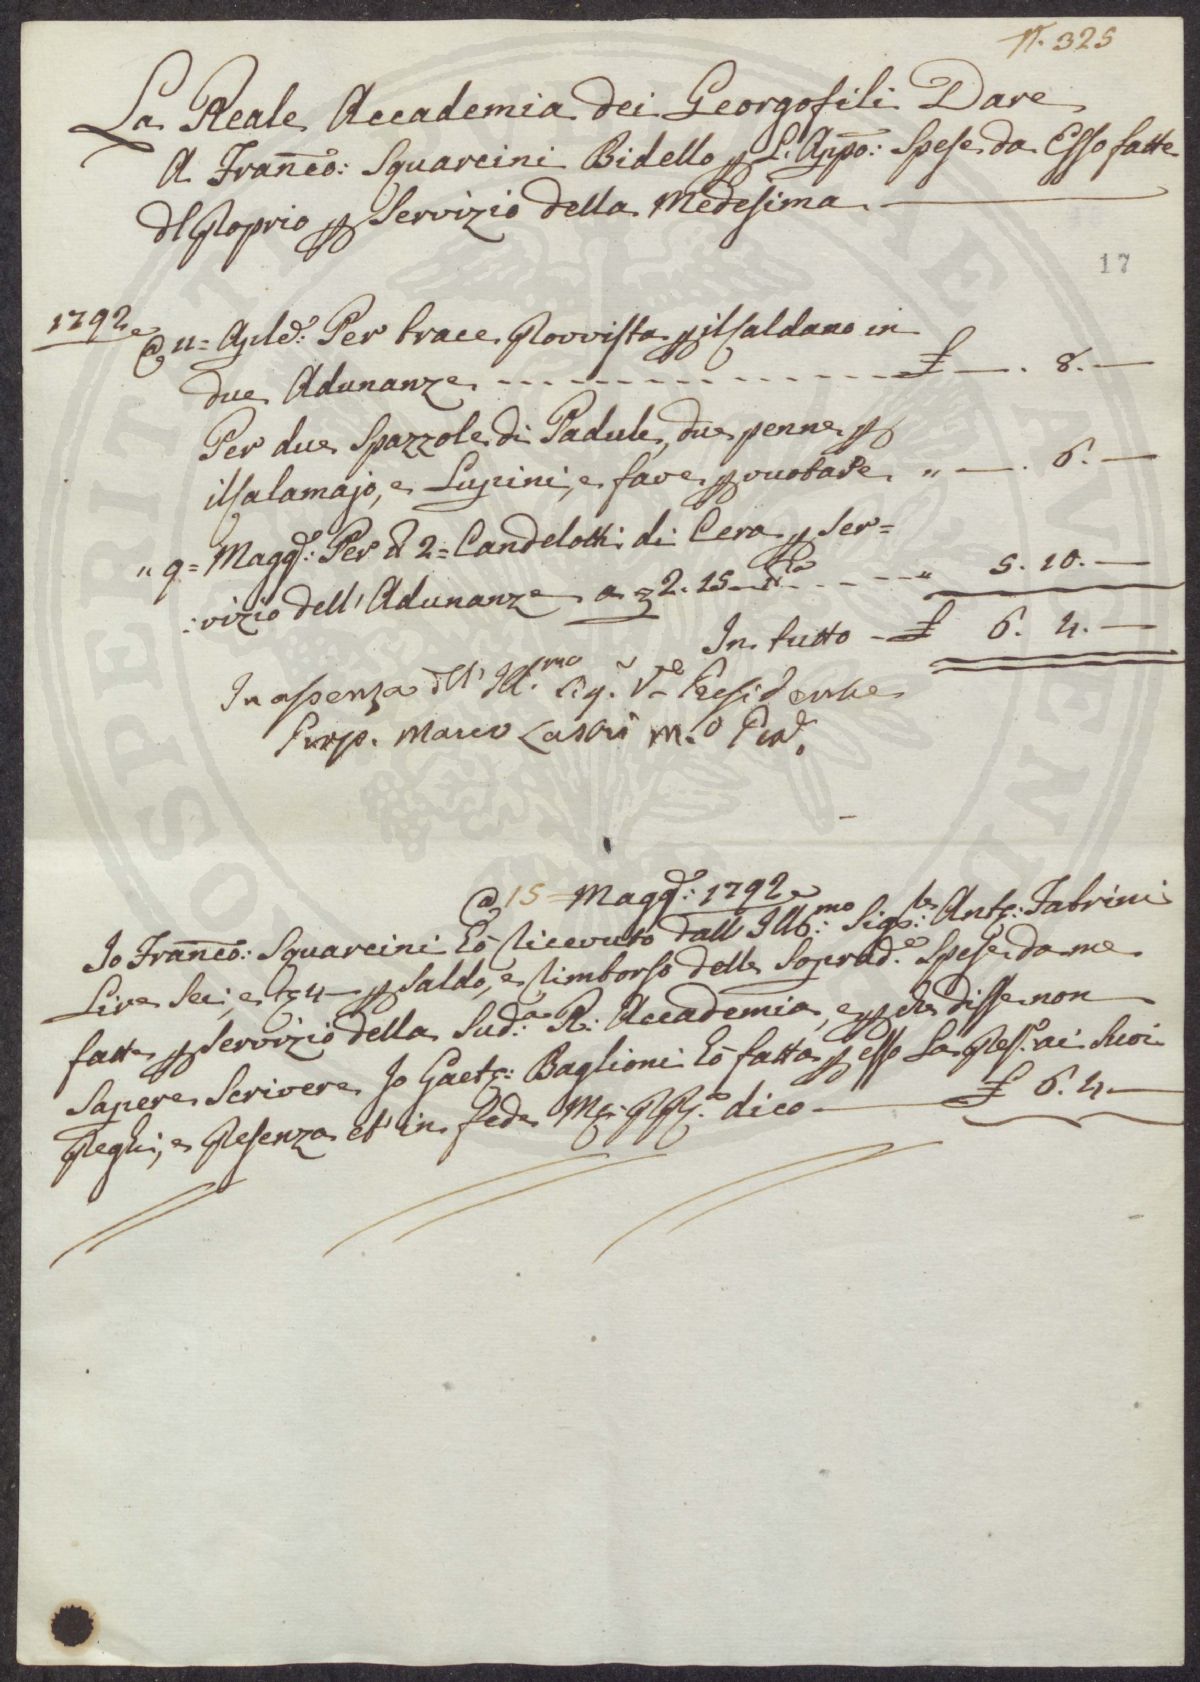 N. 325
La Reale Accademia dei Georgofili Dare
A Franco: Squarcini Bidello p L'Appo: Spese da Esso fatte
dl Proprio p Servizio della Medesima
17
1792
@ 11= Aple: Per brace Provvista p ilsaldano in
due Adunanze £ —. 8. —
Per due Spazzole di Padule, due penne p
ilCalamajo, e Lupini, e fave p vuotare " —. 6. —
" 9= Magg: Per 2= Candelotti di Cera p Ser=
:vizio dell' Adunanze a £ 2. 15 " 5. 10. —
In tutto — £ 6. 4. —
In assenza dell' Ill.mo Sig. Presidente
Prop. Marco Lastri
@ 15 Magg: 1792
Io Franco: Squarcini Eò Ricevuto dall' Illmo: Sigre: Anto: Fabrini
Lire Sei, e 4 p Saldo, e Rimborso delle Soprade Spese da me
fatte p Servizio della Suda: R: Accademia, e p che disse non
Sapere Scrivere Io Gaeto: Baglioni Eò fatta p esso La Pres: ai Suoi
Preghi, e Presenza et in fede Mo: PPa dico — £ 6. 4 —